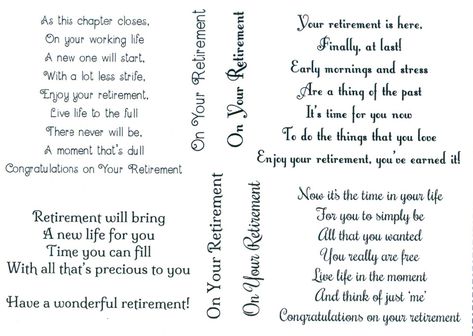 As this chapter closes,
On your working life
A new one will start,
With a lot less strife,
Enjoy your retirement,
Live life to the full
There never will be,
A moment that's dull
Congratulations on Your Retirement
On Your Retirement
On Your Retirement
Your retirement is here,
Finally, at last!
Early mornings and stress
Are a thing of the past
It's time for you now
To do the things that you love
Enjoy your retirement, you've earned it!
Retirement will bring
A new life for you
Time you can fill
With all that's precious to you
Have a wonderful retirement!
On Your Retirement
On Your Retirement
Now it's the time in your life
For you to simply be
All that you wanted
You really are free
Live life in the moment
And think of just 'me'
Congratulations on your retirement